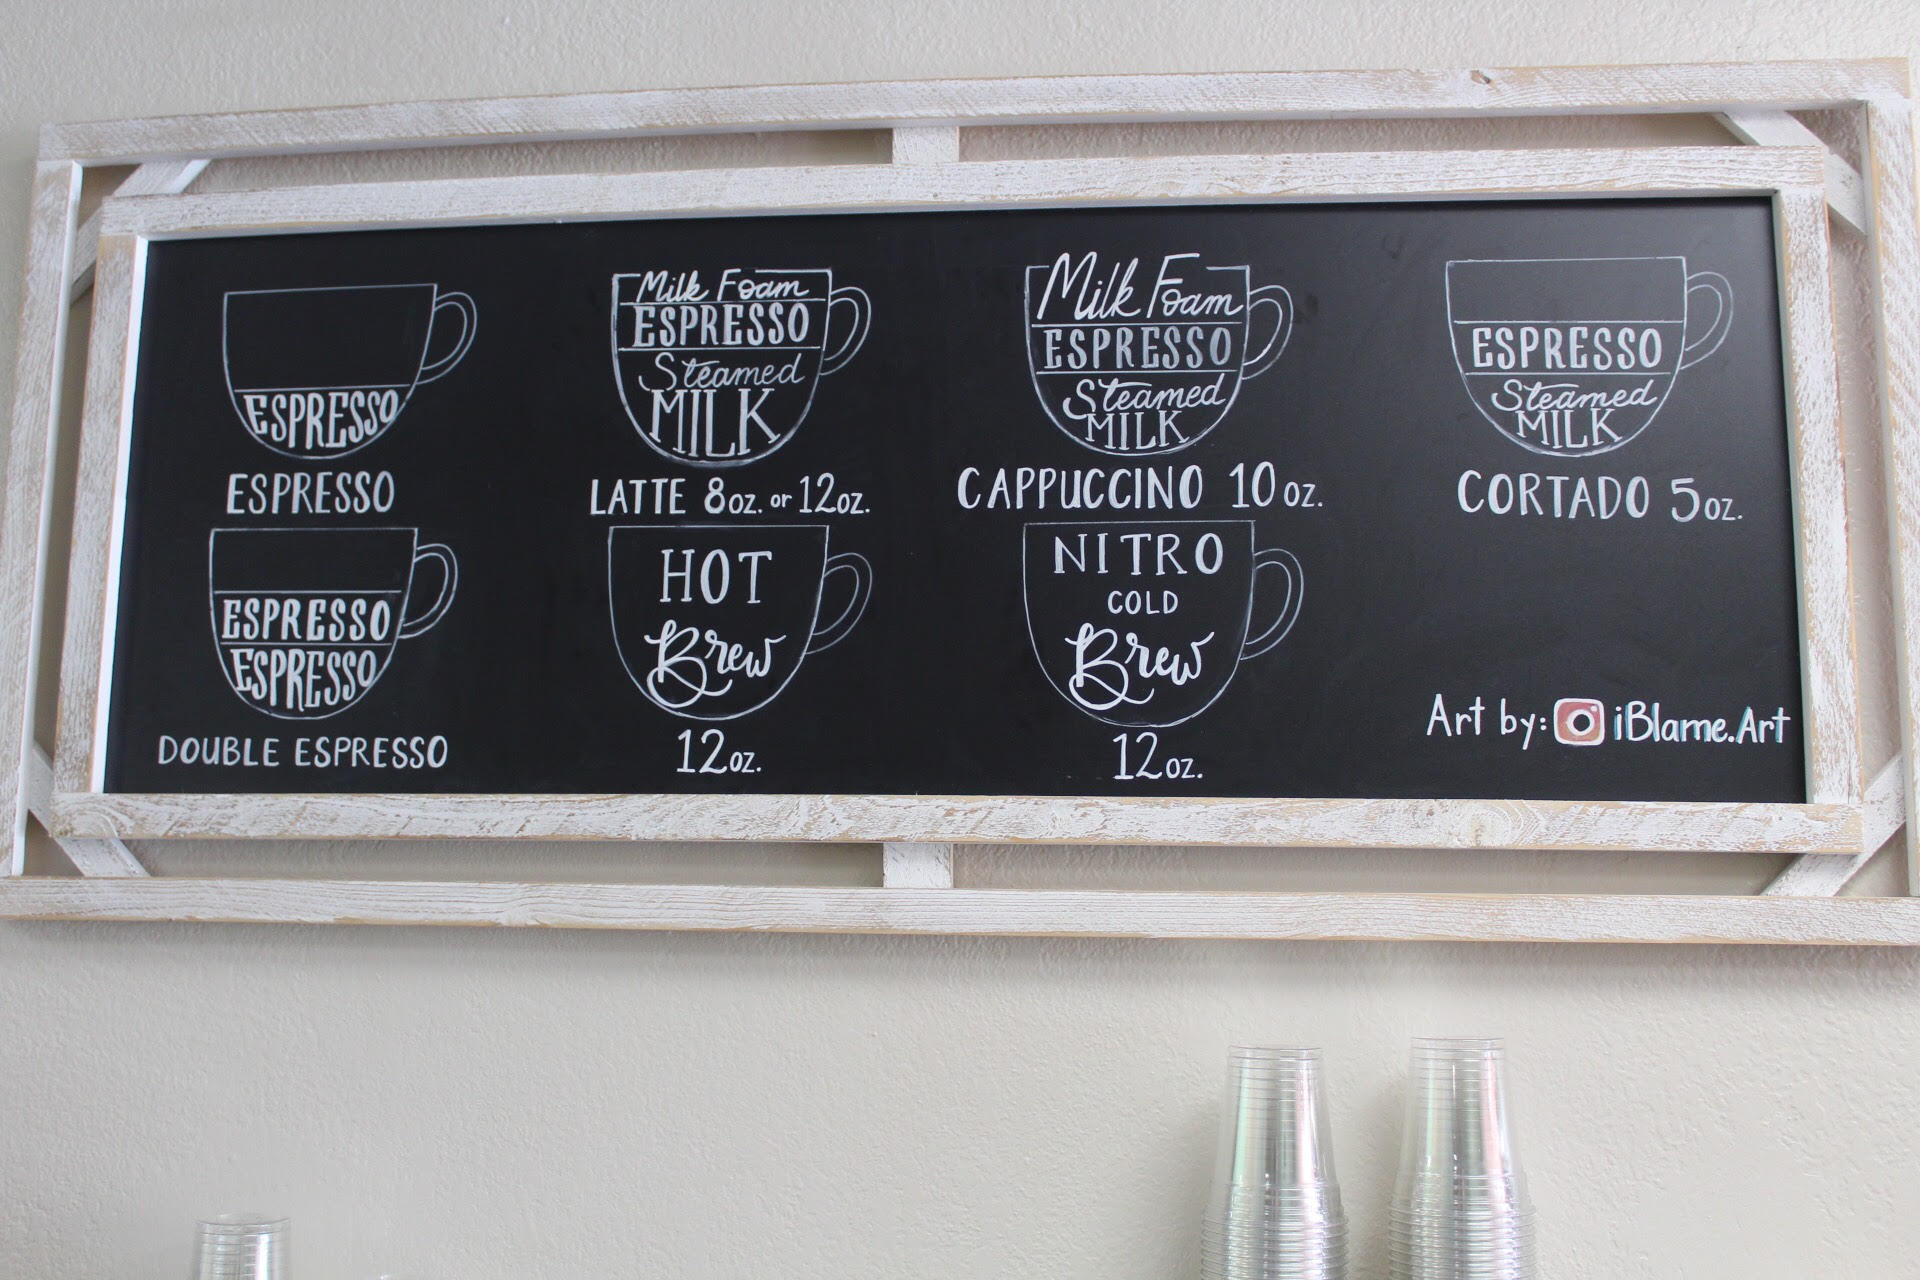 Milk Foam
ESPRESSO
Steamed
MILK
Milk Foam
ESPRESSO
Steamed
MILK
ESPRESSO
Steamed
MILK
ESPRESSO
ESPRESSO
LATTE 8oz. or 12oz.
CAPPUCCINO 10 oz.
CORTADO 5oz.
ESPRESSO
ESPRESSO
DOUBLE ESPRESSO
HOT
Brew
12oz.
NITRO
COLD
Brew
12oz.
Art by: iBlame.Art